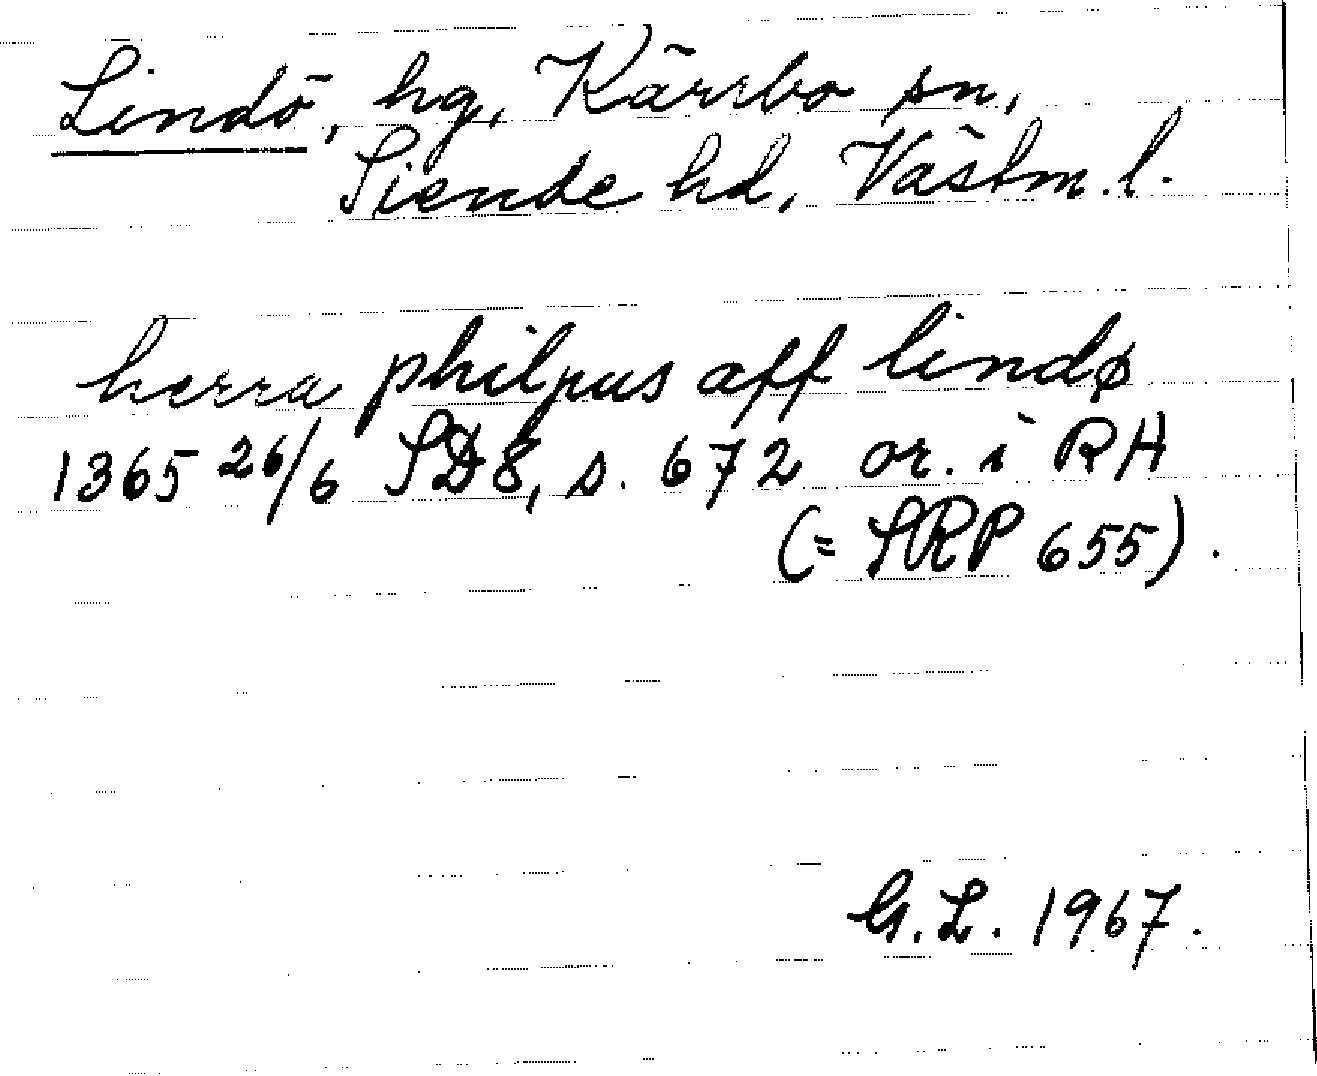 Lindö, hg, Kärrbo sn,
Siende hd, Västm. l.
herra philpus aff lindø
1365 26/6 SD8, s. 672 or. i RA
(= SRP 655).
G. L. 1967.